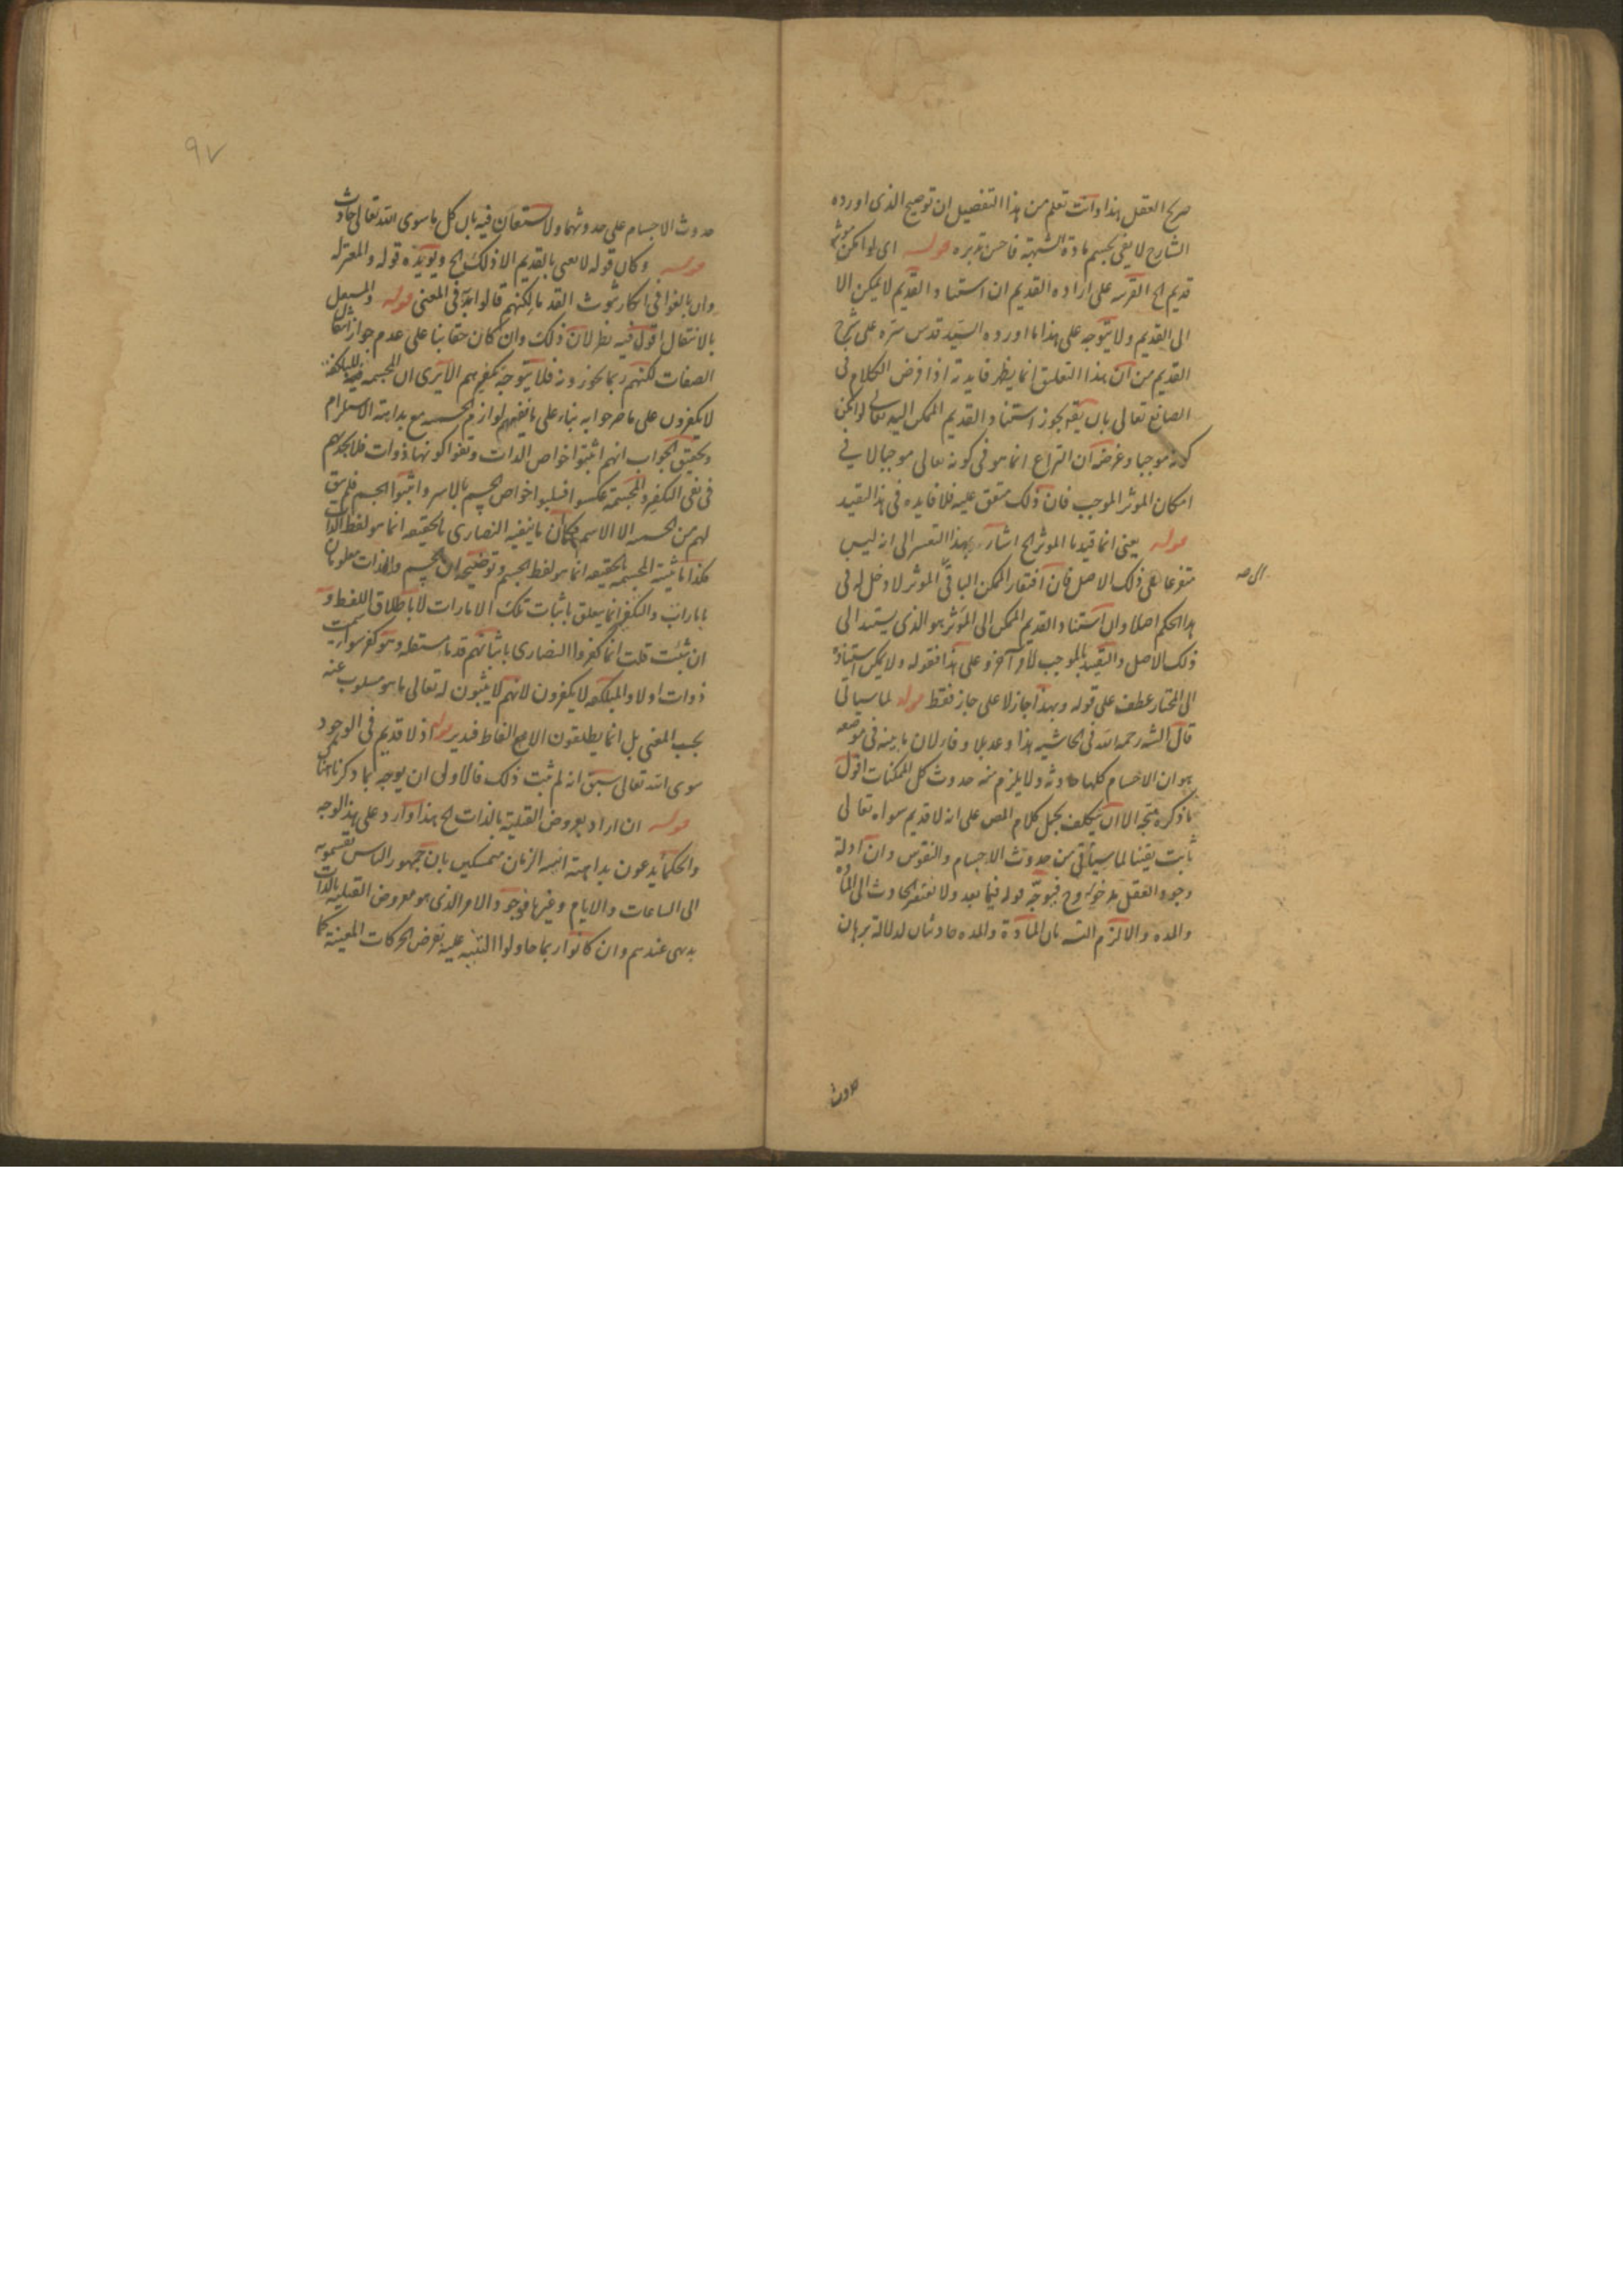 صريح العقل هذا وانت تعلم من هذا التفصيل ان توضيح الذى اورده
الشارح لا يفى بحسم مادة الشبهة فاحسن تدبره قوله اى لو امكن مؤثر
قديم الخ القرينة على ارادة القديم ان استناد القديم لا يمكن الا
الى القديم ولا يتوجه على هذا ما اورده السيد قدس سره على شرح
القديم من ان هذا التعليق انما يظهر فايدته اذا فرض الكلام فى
الصانع تعالى بان يقو يجوز استناد القديم الممكن اليه تعالى لو امكن
كونه موجبا وغرضه ان النزاع انما هو فى كونه تعالى موجبا لا فى
امكان الموثر الموجب فان ذلك متفق عليه فلا فايده فى هذا التقييد
قوله يعنى انما قيدنا الموثر الخ اشار بهذا التفسير الى انه ليس
متفرعا على ذلك الاصل فان افتقار الممكن الباقى الموثر لا دخل له فى
الى صح
هذا الحكم اصلا وان استناد القديم الممكن الى المؤثر هو الذى يستند الى
ذلك الاصل والتقييد بالموجب لامر آخر وعلى هذا فقوله ولا يمكن استناده
الى المختار عطف على قوله وبهذا جاز لا على جاز فقط قوله لما سياتى
قال الشه رحمه الله فى الحاشيه هذا وعد بلا وفاء لان ما بينه فى موضعه
هو ان الاجسام كلها حادثه ولا يلزم منه حدوث كل الممكنات اقول
ما ذكره متجه الا ان يتكلف بحمل كلام المص على انه لا قديم سواه تعالى
ثابت يقينا لما سياتى من حدوث الاجسام والنفوس وان ادلة
وجود العقل مدخوله وح فيوجه قوله فيما بعد ولا يفتقر الحادث الى المادة
والمده والا لزم التسه بان المادة والمده حادثتان لدلالة برهان
حدوث
٩٧
حدوث الاجسام على حدوثهما ولا ستعان فيه بان كل ما سوى الله تعالى حادث
قوله وكان قوله لا يعنى بالقديم الا ذلك الخ ويؤيده قوله والمعتزله
وان بالغوا فى انكار ثبوت القدما لكنهم قالوا به فى المعنى قوله والمستقل
بالانتقال اقول فيه نظر لان ذلك وان كان حقا بنا على عدم جواز انتقال
الصفات لكنهم ربما يجوزونه فلا يتوجه تكفيرهم الا يرى ان المجسمه
لا يكفرون على ما صرحوا به بناء على ما نفيهم لوازم الجسمية مع بداهة الاستلزام
وتحقيق الجواب انهم اثبتوا خواص الذات ونفوا كونها ذوات فلا يجديهم
فى نفى التكفير والمجسمة عكسوا فسلبوا خواص الجسم بالاسر واثبتوا الجسم فلم يبق
لهم من الجسميه الا الاسم فكان ما ينفيه النصارى بالحقيقه انما هو لفظ الذات
هكذا ما يثبته المجسمه بالحقيقه انما هو لفظ الجسم وتوضيحه ان الجسم والذات معلومان
بامارات والتكفير انما يتعلق باثبات تلك الامارات لا باطلاق اللفظ و
ان شئت قلت انما كفروا النصارى باثباتهم قدما مستقله وهو كفر سواء سميت
ذوات اولا والمبلكفه لا يكفرون لانهم لا يثبتون له تعالى ما هو مسلوب عنه
بحسب المعنى بل انما يطلقون الالفاظ فتدبر قوله اذ لا قديم فى الوجود
سوى الله تعالى سبق انه لم يثبت ذلك فالاولى ان يوجه بما ذكرنا هناك
قوله ان اراد بعروض القبلية بالذات الخ هذا وارد على هذا الوجه
والحكما يدعون بداهة انيه الزمان متمسكين بان جمهور الناس تقسمونه
الى الساعات والايام وغيرها فوجود الامر الذى هو معروض القبلية بالذات
بديهى عندهم وان كانوا ربما حاولوا التنبيه عليه بفرض الحركات المعينة كما